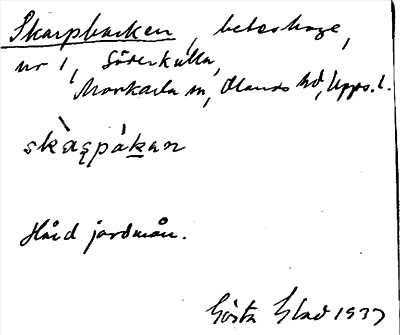 Skarpbacken, beteshage,
nr 1, Söderkulla,
Morkarla sn, Olands hd, Upps. l.
skàrpákan
Hård jordmån.
Gösta Blad 1937